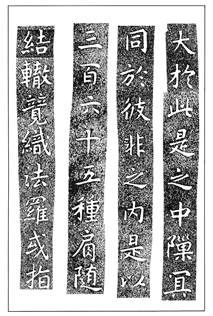 大於此是之中隟
同於彼非之内是以
三百六十五種肩随
結轍竟織法羅或指